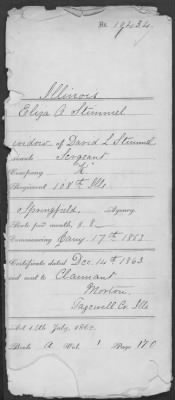 No. 19434.
Illinois
Eliza A Stimmel
widow of David L Stimmel
rank Sergeant
Company "K"
Regiment 108th Ills
Springfield, Agency.
Rate per month, $ 8
Commencing Jany 17th 1863
Certificate dated Dec. 14th 1863
and sent to Claimant
Morton,
Tazewell Co. Ills
Act 14th July, 1862.
Book A Vol. 1 Page 170